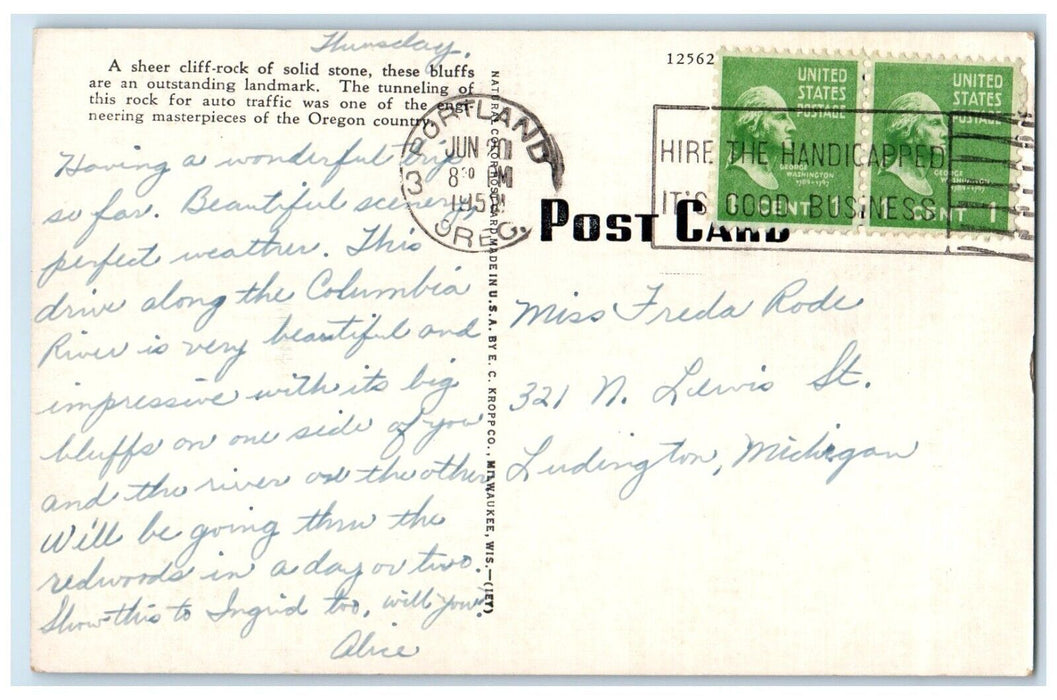 Thursday.
A sheer cliff-rock of solid stone, these bluffs
are an outstanding landmark. The tunneling of
this rock for auto traffic was one of the engi-
neering masterpieces of the Oregon country.
Having a wonderful trip
so far. Beautiful scenery,
perfect weather. This
drive along the Columbia
River is very beautiful and
impressive with its big
bluffs on one side of you
and the river on the other.
Will be going thru the
redwoods in a day or two.
Show this to Ingrid too, will you?
Alice
NATURAL COLOR POST CARD MADE IN U.S.A. BY E. C. KROPP CO., MILWAUKEE, WIS.—(1EY)
12562
PORTLAND
JUN 20
8 30 PM
195
OREG.
3
HIRE THE HANDICAPPED
IT'S GOOD BUSINESS
UNITED
STATES
POSTAGE
GEORGE
WASHINGTON
1789-1797
1 CENT 1
UNITED
STATES
POSTAGE
GEORGE
WASHINGTON
1789-1797
CENT 1
POST CARD
Miss Freda Rode
321 N. Lewis St.
Ludington, Michigan